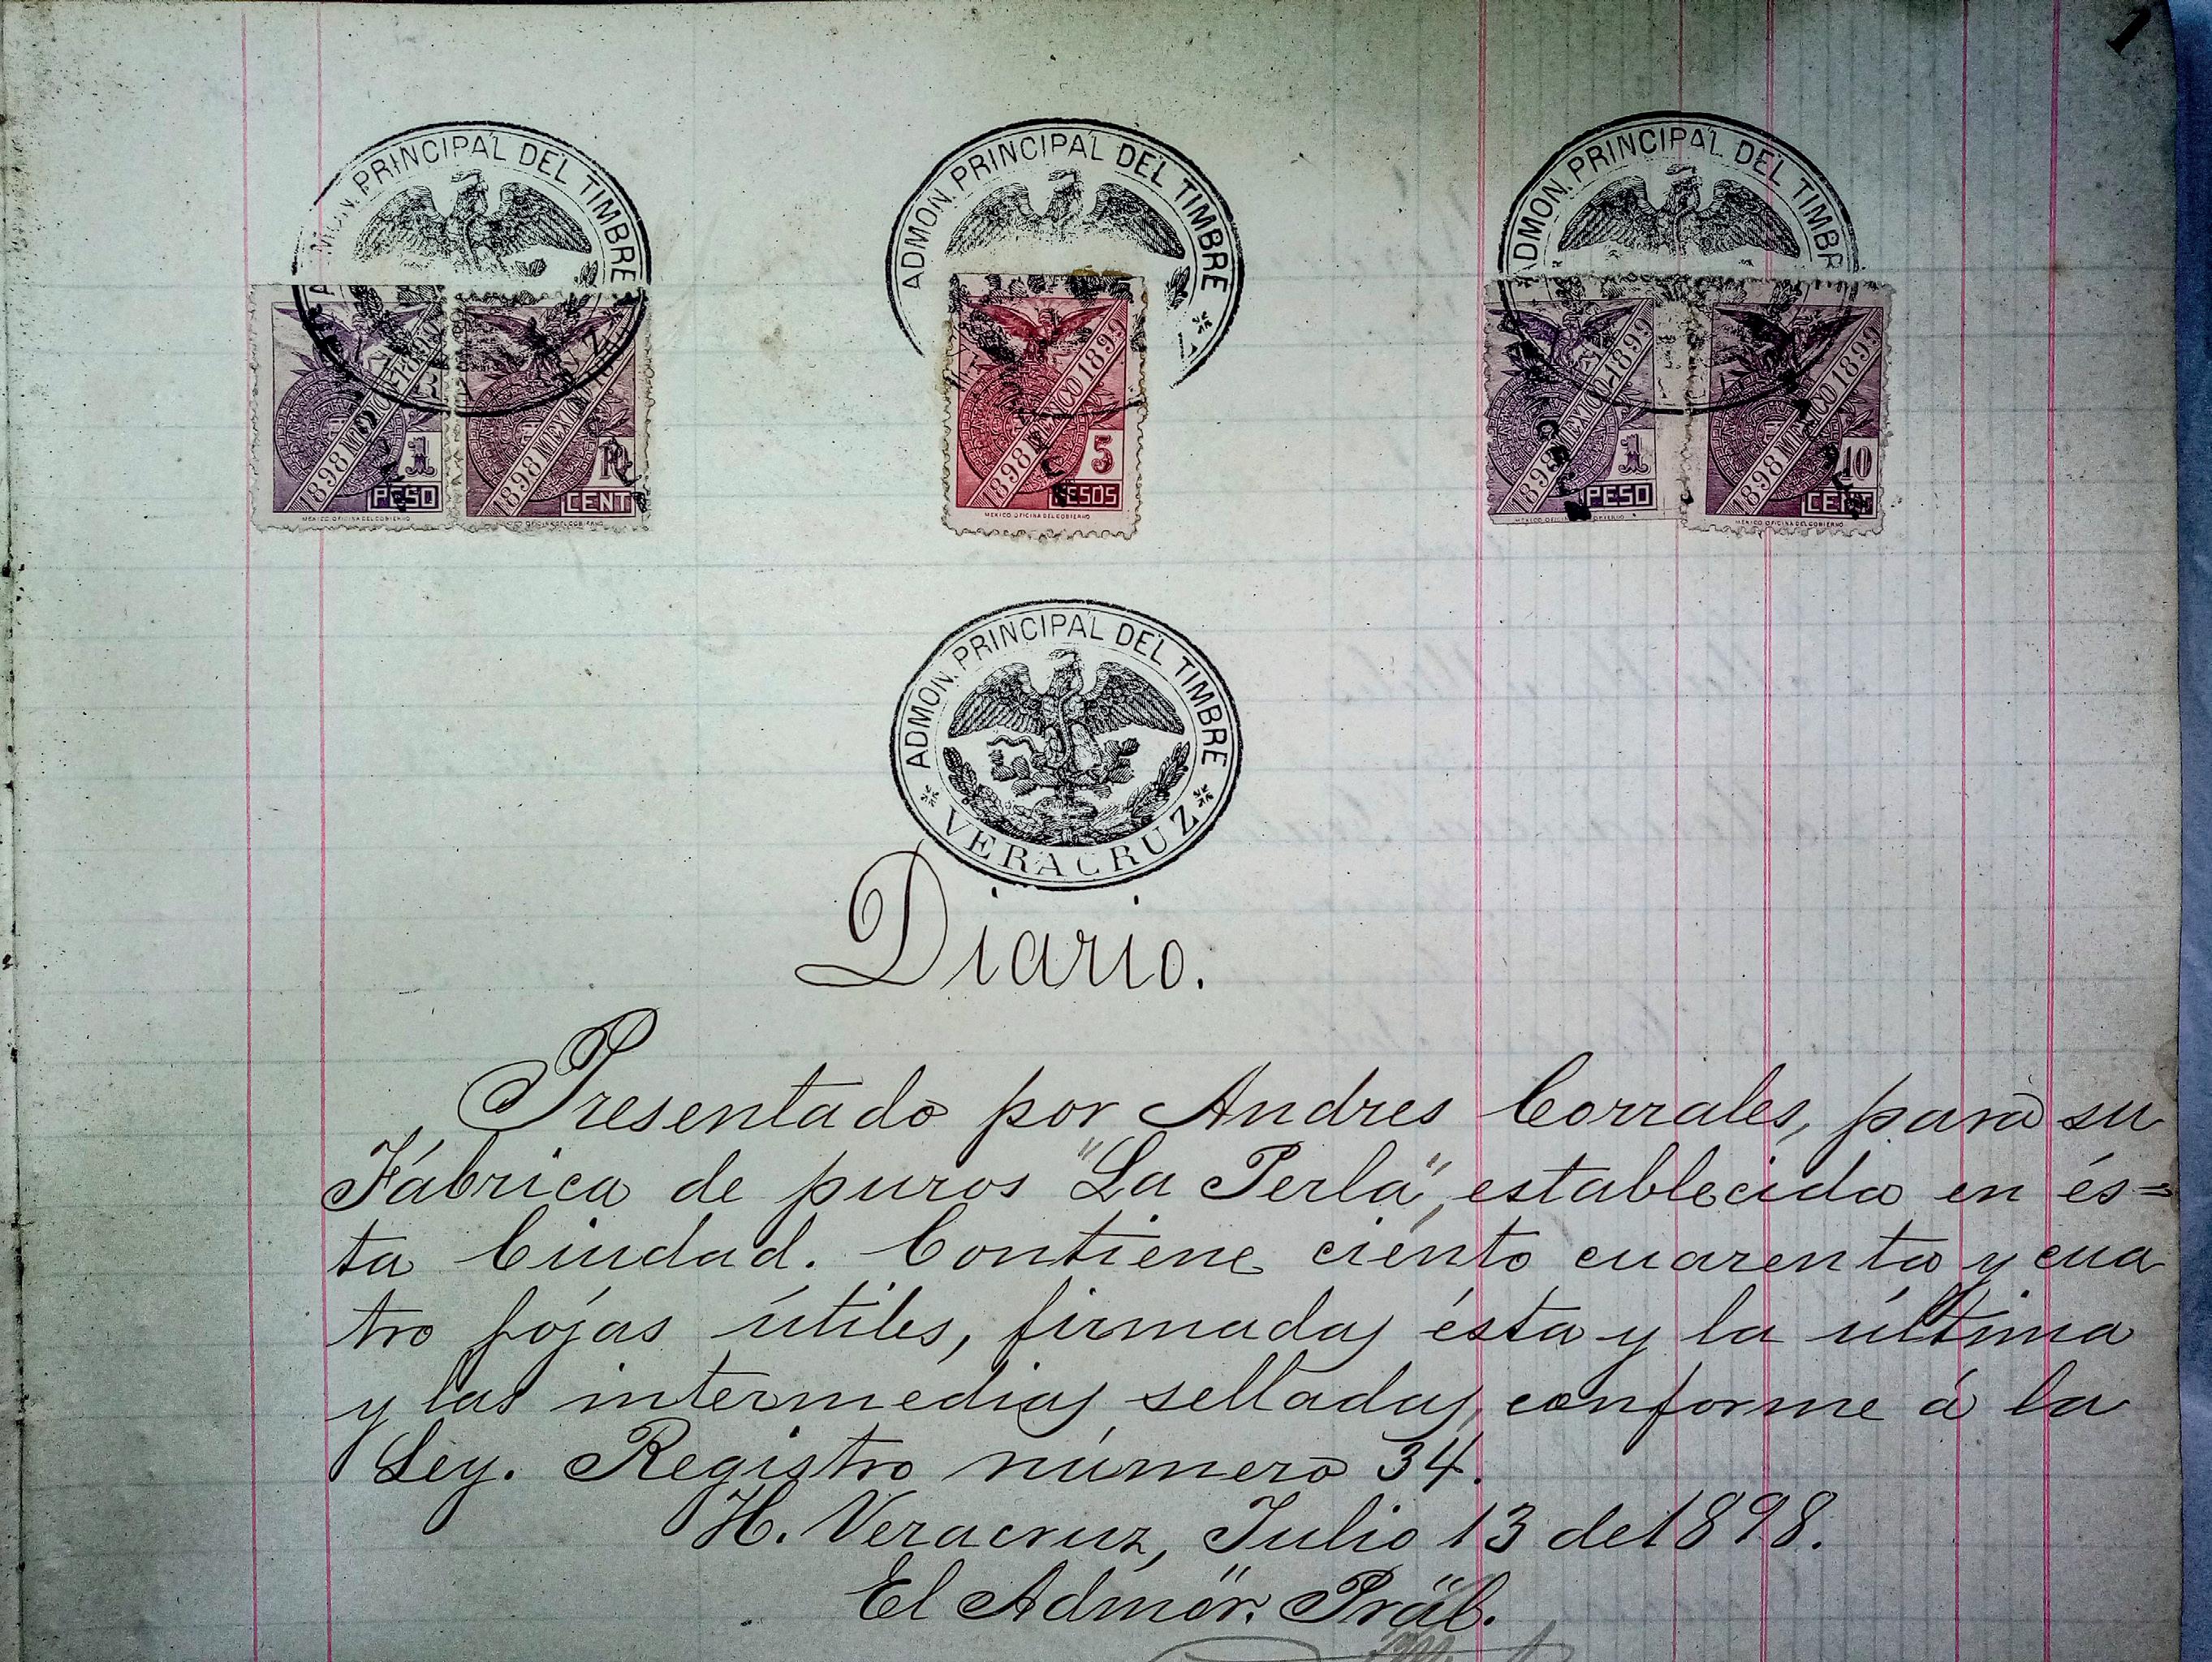 1
ADMON. PRINCIPAL DEL TIMBRE
ADMON. PRINCIPAL DEL TIMBRE
ADMON. PRINCIPAL DEL TIMBRE
1898 MEXICO 1899
1 PESO
MEXICO OFICINA DEL GOBIERNO
1898 MEXICO
10 CENT
MEXICO OFICINA DEL GOBIERNO
1898 MEXICO 1899
5 PESOS
MEXICO OFICINA DEL GOBIERNO
1898 MEXICO 1899
1 PESO
MEXICO OFICINA GOBIERNO
1898 MEXICO 1899
10 CENT
MEXICO OFICINA DEL GOBIERNO
ADMON. PRINCIPAL DEL TIMBRE
VERACRUZ
Diario.
Presentado por Andres Corrales, para su
Fábrica de puros "La Perla", establecida en és=
ta Ciudad. Contiene ciento cuarenta y cua
tro fojas útiles, firmadas ésta y la última
y las intermedias selladas, conforme á la
Ley. Registro número 34.
H. Veracruz, Julio 13 de 1898.
El Admor. Pral.